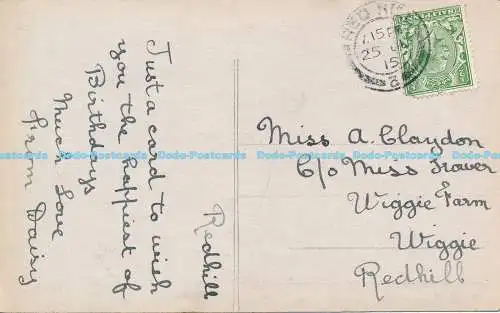 Just a card to wish
you the happiest of
Birthdays
Much Love
From Daisy
Redhill
Miss A. Claydon
C/o Miss
Wiggie Farm
Wiggie
Redhill
25
15
Dodo-Postcards Dodo-Postcards Dodo-Postcards Dodo-Postcards Dodo-Postcards Dodo-Postcards